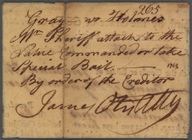 265
Gray vs Holmes
Mr. Sheriff attach to the
Value Commanded or take
Special Bail
By order of the Creditor
James